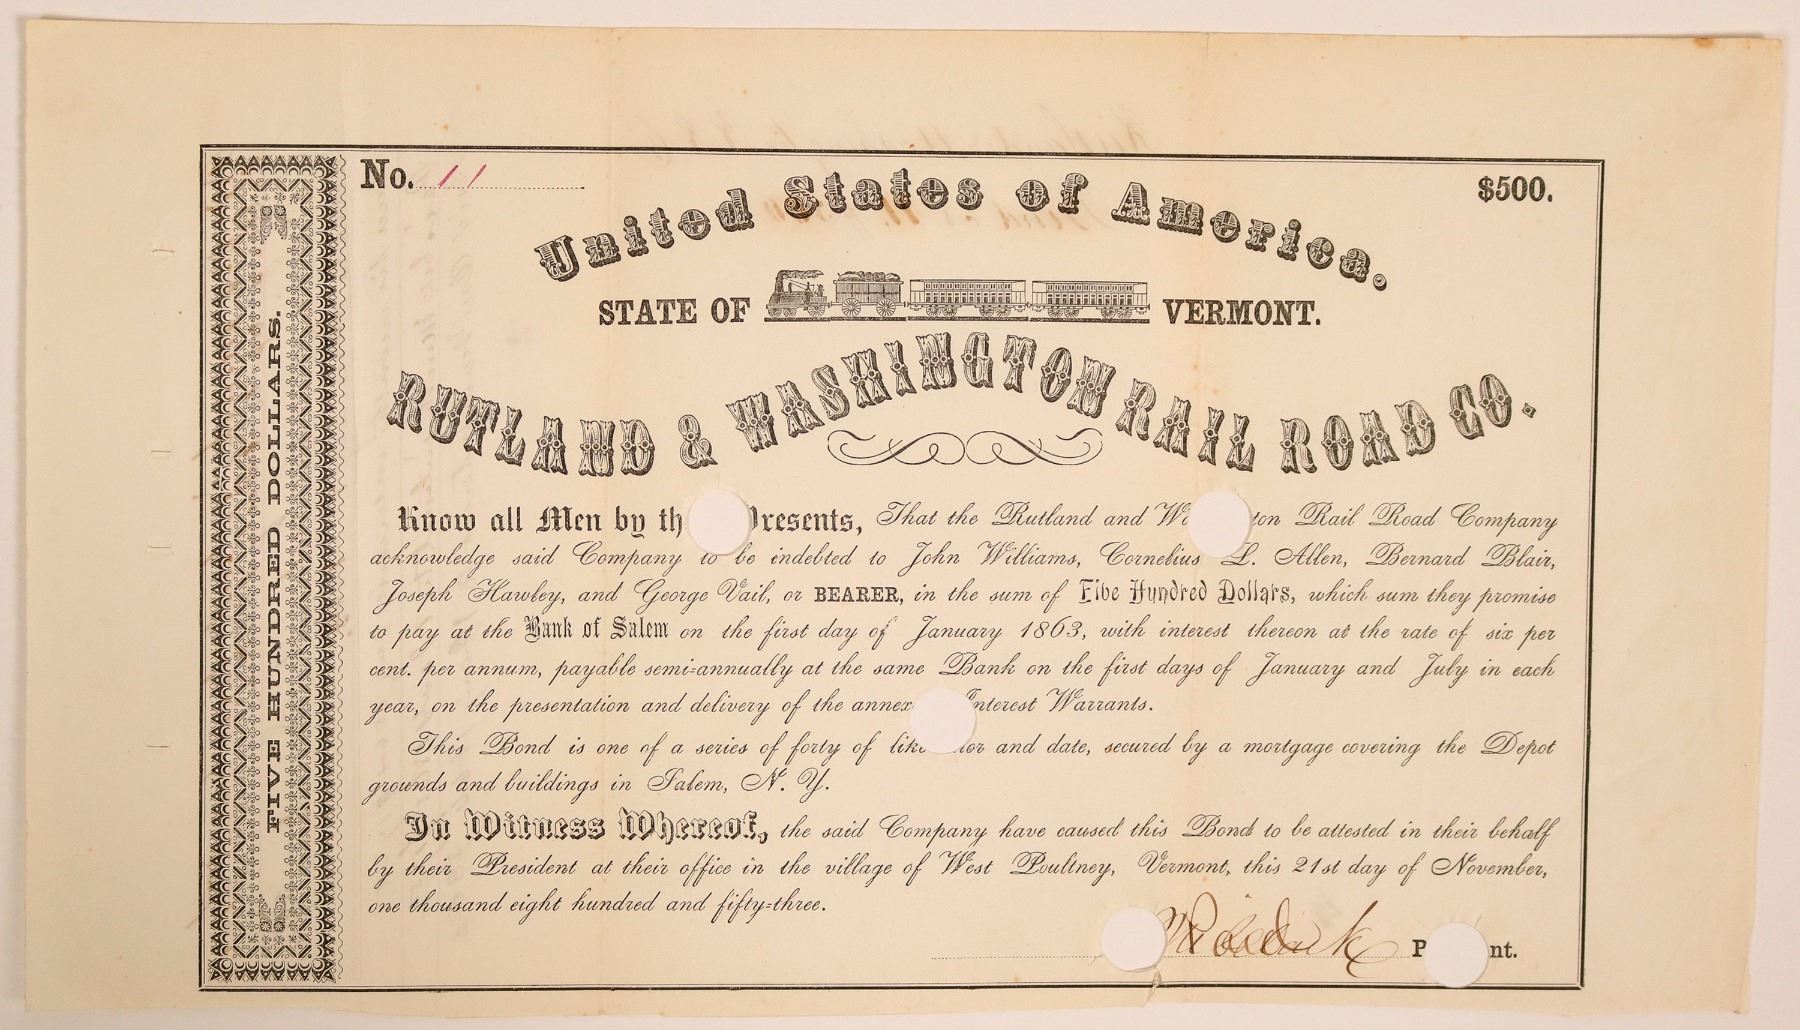 No. 11
$500.
United States of America.
STATE OF VERMONT.
RUTLAND & WASHINGTON RAIL ROAD CO.
FIVE HUNDRED DOLLARS.
Know all Men by th resents, That the Rutland and W ton Rail Road Company
acknowledge said Company to be indebted to John Williams, Cornelius L. Allen, Bernard Blair,
Joseph Hawley, and George Vail, or BEARER, in the sum of Five Hundred Dollars, which sum they promise
to pay at the Bank of Salem on the first day of January 1863, with interest thereon at the rate of six per
cent. per annum, payable semi-annually at the same Bank on the first days of January and July in each
year, on the presentation and delivery of the annex Interest Warrants.
This Bond is one of a series of forty of like and date, secured by a mortgage covering the Depot
grounds and buildings in Salem, N. Y.
In Witness Whereof, the said Company have caused this Bond to be attested in their behalf
by their President at their office in the village of West Poultney, Vermont, this 21st day of November,
one thousand eight hundred and fifty-three.
P nt.